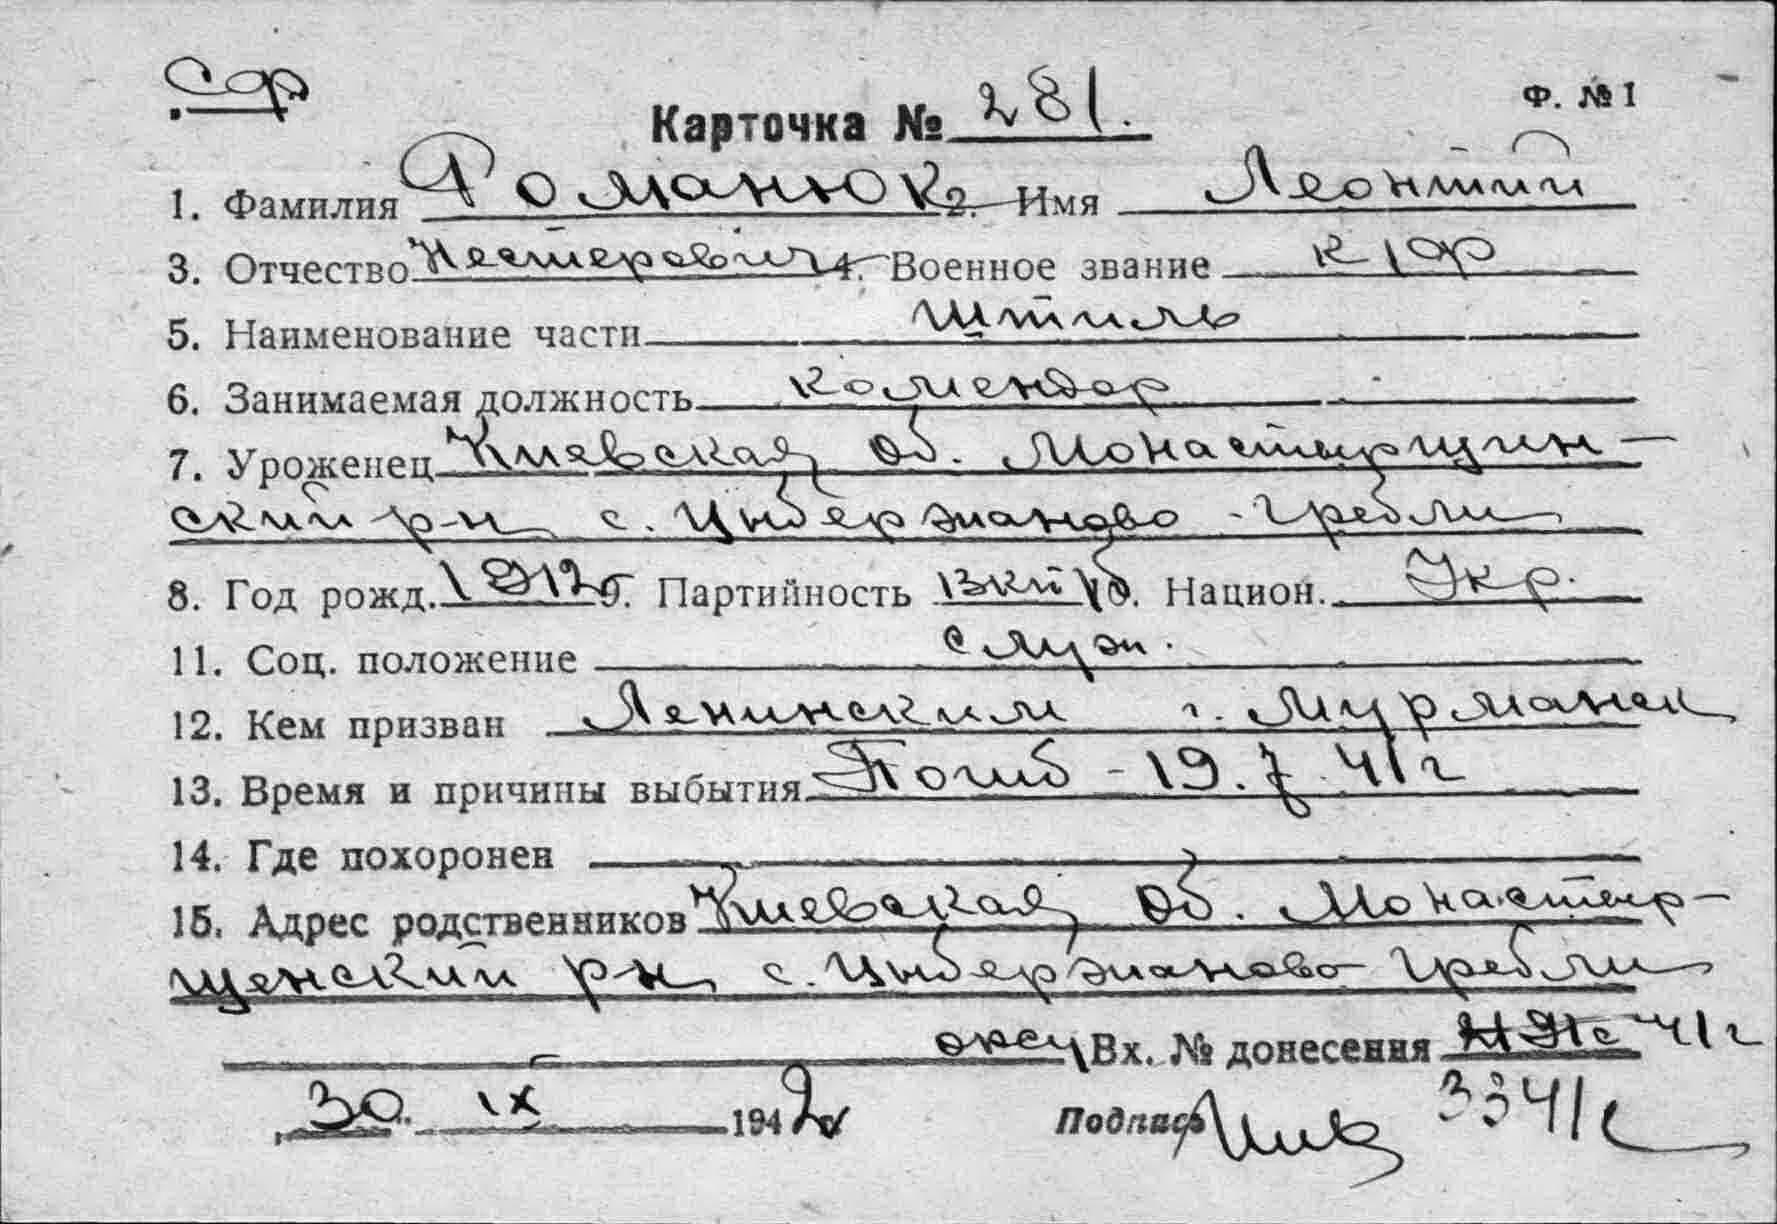 Сф
Ф. № 1
Карточка № 281.
1. Фамилия Романюк 2. Имя Леонтий
3. Отчество Нестерович 4. Военное звание к/ф
5. Наименование части Штиль
6. Занимаемая должность комендор
7. Уроженец Киевская об. Монастырщин-
ский р-н с. Цыбержаново-гребли
8. Год рожд. 1912 9. Партийность ВКП/б. Национ. Укр.
11. Соц. положение служ.
12. Кем призван Ленинским г. Мурманск
13. Время и причины выбытия Погиб - 19.7.41г
14. Где похоронен
15. Адрес родственников Киевская об. Монастыр-
щенский р-н с. Цыбержаново-гребли
Вх. № донесения 41г
30. IX 1942 Подпись 3341с